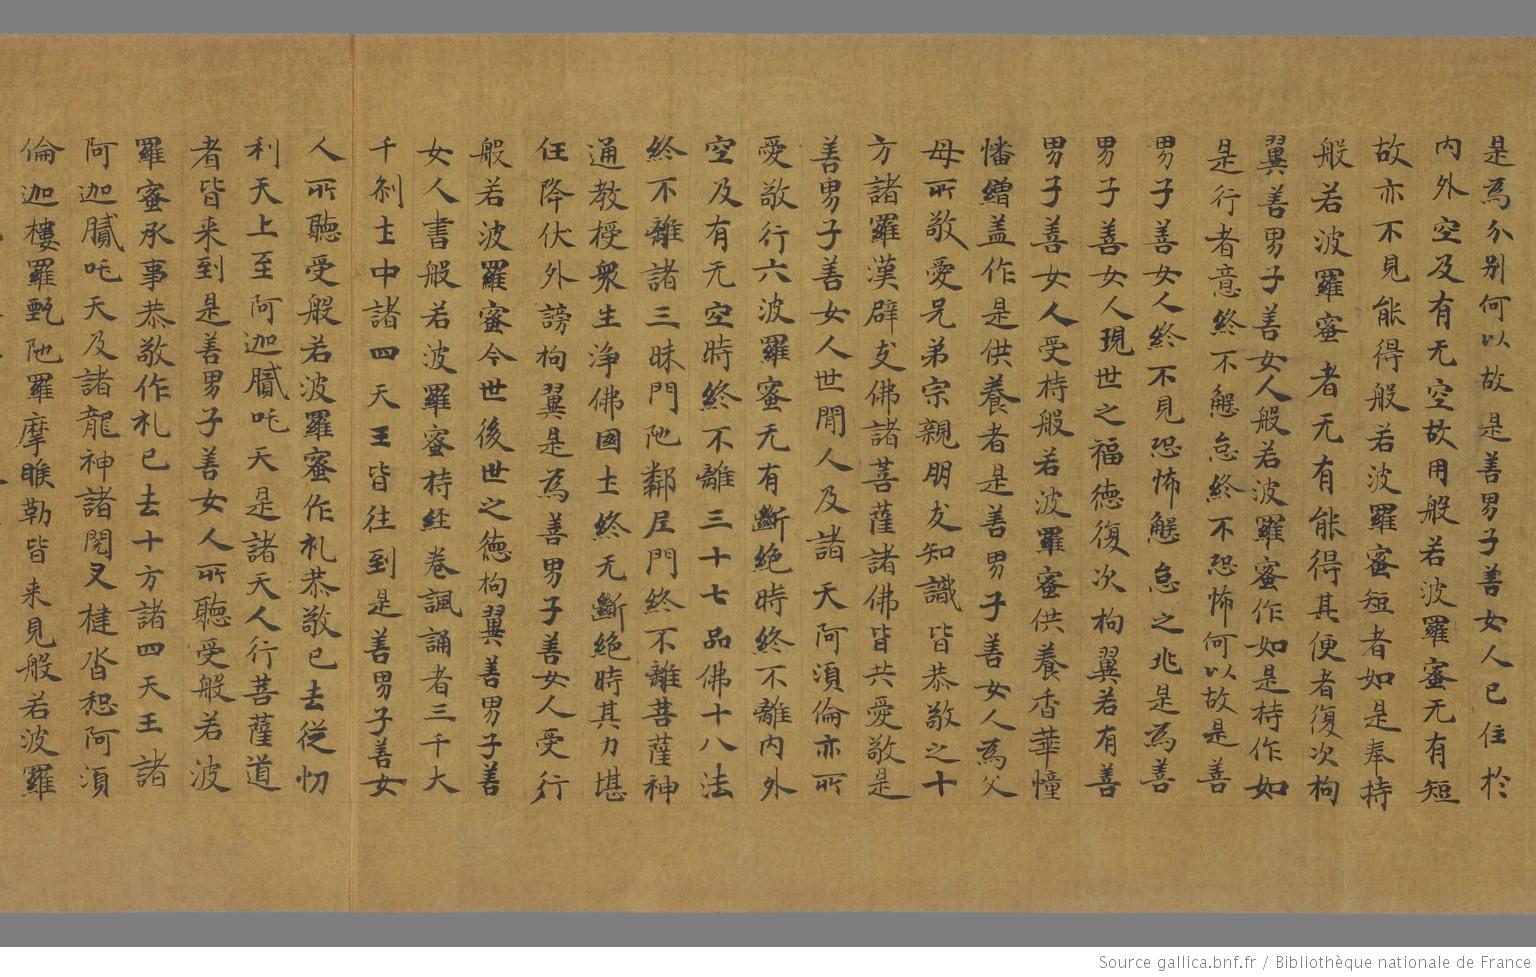 是為分別何以故是善男子善女人已住於
内外空及有无空故用般若波羅蜜无有短
故亦不見能得般若波羅蜜短者如是奉持
般若波羅蜜者无有能得其便者復次拘
翼善男子善女人般若波羅蜜作如是持作如
是行者意終不懈怠終不恐怖何以故是善
男子善女人終不見恐怖懈怠之兆是為善
男子善女人現世之福德復次拘翼若有善
男子善女人受持般若波羅蜜供養香華幢
幡繒盖作是供養者是善男子善女人為父
母所敬愛兄弟宗親朋友知識皆恭敬之十
方諸羅漢辟支佛諸菩薩諸佛皆共愛敬是
善男子善女人世閒人及諸天阿湏倫亦所
愛敬行六波羅蜜无有斷絶時終不離内外
空及有无空時終不離三十七品佛十八法
終不離諸三昧門陁鄰尼門終不離菩薩神
通教授衆生淨佛國土終无斷絶時其力堪
任降伏外謗拘翼是為善男子善女人受行
般若波羅蜜今世後世之德拘翼善男子善
女人書般若波羅蜜持経卷諷誦者三千大
千剎土中諸四天王皆往到是善男子善女
人所聽受般若波羅蜜作礼恭敬已去從忉
利天上至阿迦膩吒天是諸天人行菩薩道
者皆来到是善男子善女人所聽受般若波
羅蜜承事恭敬作礼已去十方諸四天王諸
阿迦膩吒天及諸龍神諸閱叉揵沓惒阿湏
倫迦樓羅甄陁羅摩睺勒皆来見般若波羅
Source gallica.bnf.fr / Bibliothèque nationale de France